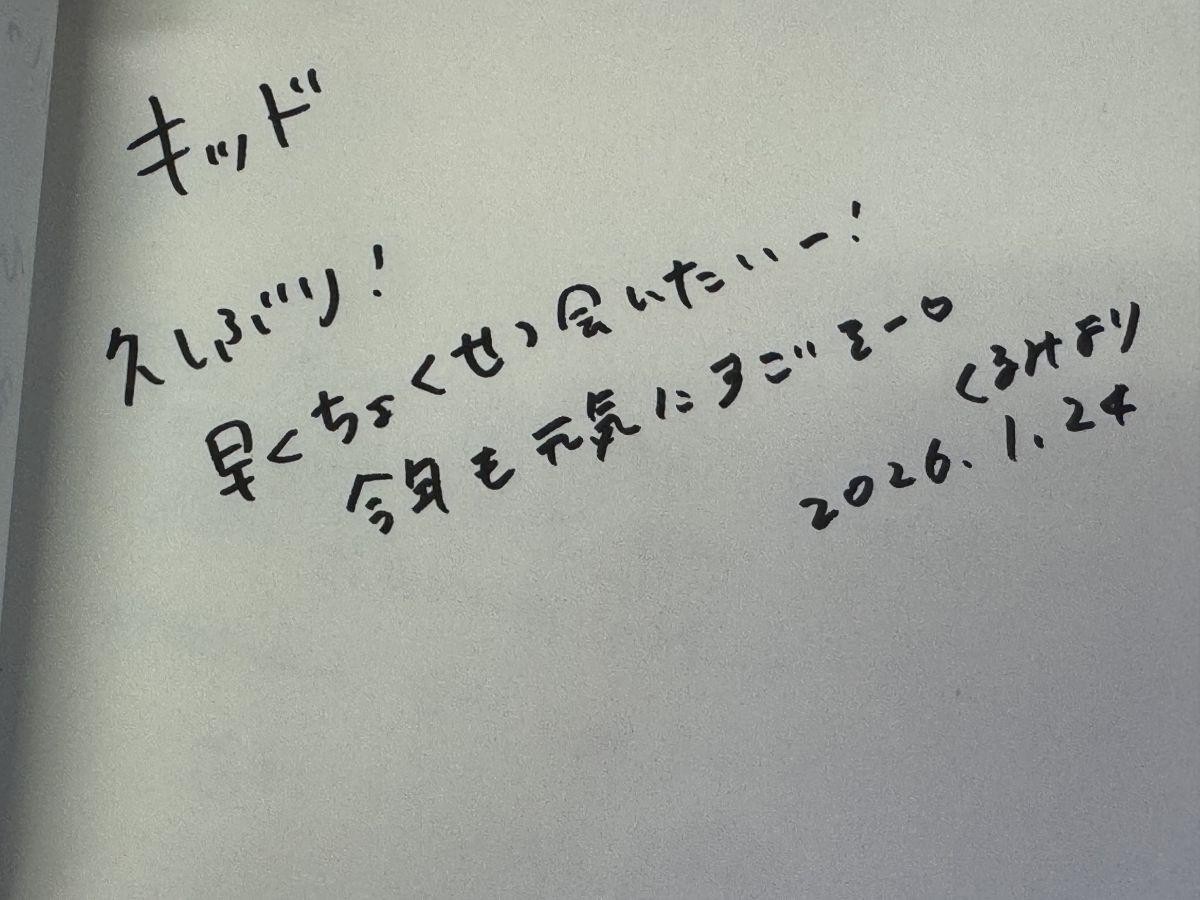 キッド
久しぶり!
早くちょくせつ会いたいー!
今年も元気にすごそー。
くるみより
2026.1.24